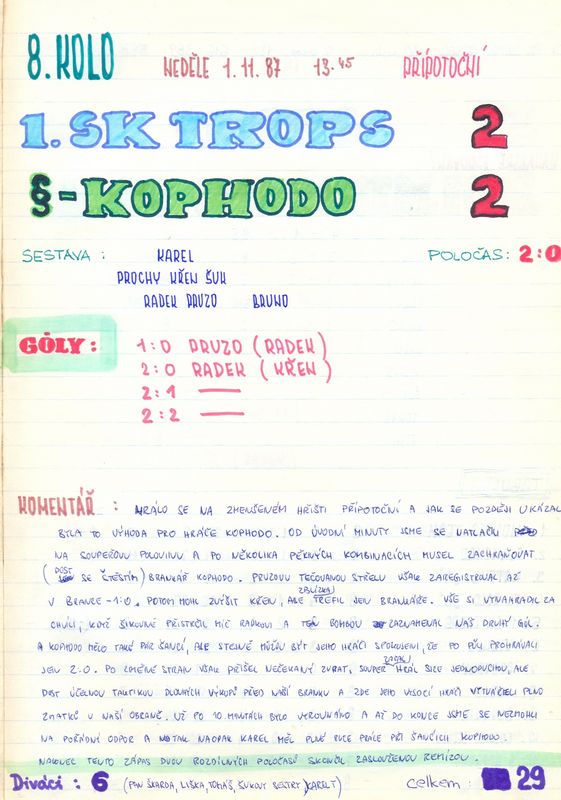 8. KOLO NEDĚLE 1.11.87 13.45 PŘÍPOTOČNÍ
1. SK TROPS 2
§-KOPHODO 2
SESTAVA : KAREL POLOČAS: 2:0
PROCHY KŘEN ŠUK
RADEK PRUZO BRUNO
GÓLY : 1:0 PRUZO (RADEK)
2:0 RADEK (KŘEN)
2:1 —
2:2 —
KOMENTÁŘ : HRÁLO SE NA ZMENŠENÉM HŘIŠTI PŘÍPOTOČNÍ A JAK SE POZDĚJI UKÁZAL
BYLA TO VÝHODA PRO HRÁČE KOPHODO. OD ÚVODNÍ MINUTY JSME SE NATLAČILI
NA SOUPEŘOVU POLOVINU A PO NĚKOLIKA PĚKNÝCH KOMBINACÍCH MUSEL ZACHRAŇOVAT
(DOST SE ŠTĚSTÍM) BRANKÁŘ KOPHODO. PRUZOVU TEČOVANOU STŘELU VŠAK ZAREGISTROVAL AŽ
V BRANCE -1:0. POTOM MOHL ZVÝŠIT KŘEN, ALE ZBLÍZKA TREFIL JEN BRANKÁŘE. VŠE SI VYNAHRADIL ZA
CHVÍLI, KDYŽ ŠIKOVNĚ PŘISTRČIL MÍČ RADKOVI A TEN BOMBOU ZAZNAMENAL NÁŠ DRUHÝ GÓL.
A KOPHODO MĚLO TAKÉ PÁR ŠANCÍ, ALE STEJNĚ MŮŽOU BÝT JEHO HRÁČI SPOKOJENI, ŽE PO PŮLI PROHRÁVALI
JEN 2:0. PO ZMĚNĚ STRAN VŠAK PŘIŠEL NEČEKANÝ ZVRAT, SOUPEŘ ZAČAL HRÁL SICE JEDNODUCHOU, ALE
DOST ÚČELNOU TAKTIKOU DLOUHÝCH VÝKOPŮ PŘED NAŠÍ BRANKU A ZDE JEHO VYSOCÍ HRÁČI VYTVÁŘELI PLNO
ZMATKŮ V NAŠÍ OBRANĚ. UŽ PO 10 MINUTÁCH BYLO VYROVNÁNO A AŽ DO KONCE JSME SE NEZMOHLI
NA POŘÁDNÝ ODPOR A NAOPAK KAREL MĚL PLNÉ RUCE PRÁCE PŘI ŠANCÍCH KOPHODO.
NAKONEC TENTO ZÁPAS DVOU ROZDÍLNÝCH POLOČASŮ SKONČIL ZASLOUŽENOU REMÍZOU.
Diváci : 6 (PAN ŠKARDA, LIŠKA, TOMÁŠ, ŠUKOVY SESTRY, KARELT) celkem : 29